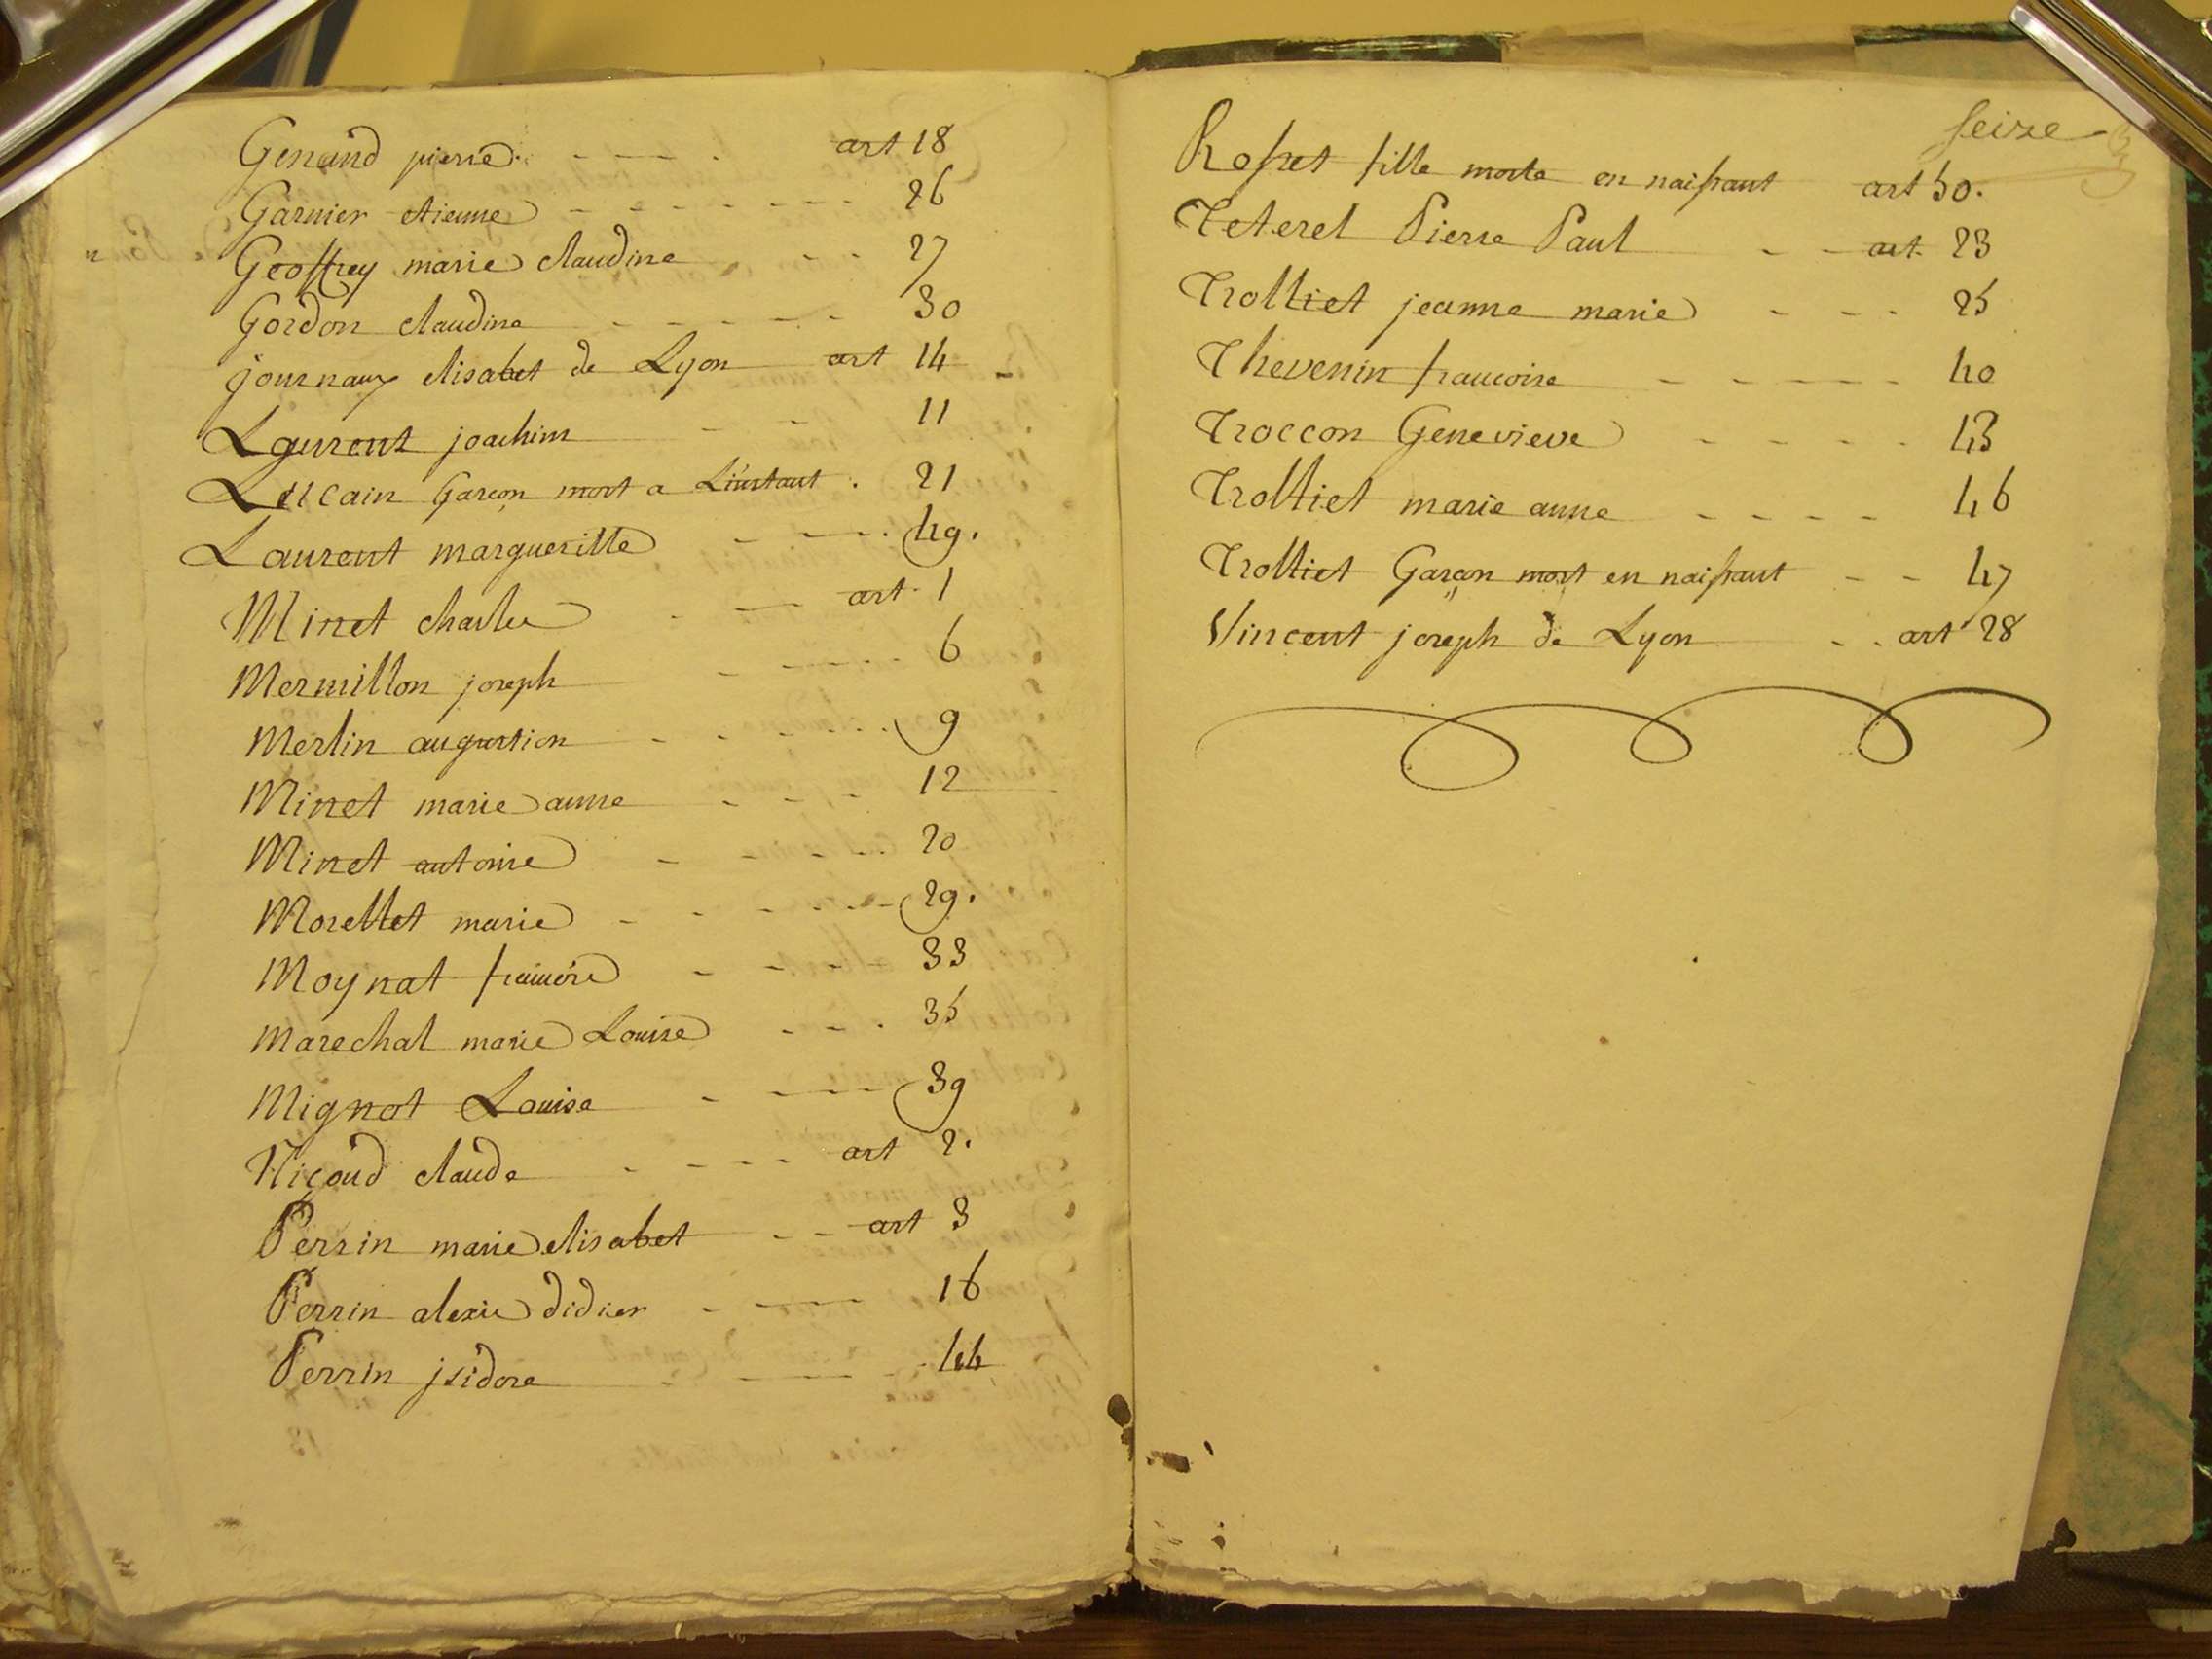 Genand pierre - - - - . art 18
Garnier etienne - - - - - - - 26
Geoffrey marie claudine - - - 27
Gordon claudine - - - - - - 30
journaux elisabet de Lyon art 14 -
Laurent joachim - - 11
Lucain Garçon mort a L'instant . 21
Laurent margueritte - - - . 49.
Minet charles - - art. 1
Mermillon joseph - - - - - 6
Merlin augustion - - - - - 9
Minet marie anne - - - 12
Minet antoine - - - - 20
Morellet marie - - - - - - 29.
Moynat francoise - - - 33
Marechal marie Louise - - . 35
Mignot Louise - - - - 39
Nicoud claude - - - - art 2.
Perrin marie elisabet - - art 3
Perrin alexis didier - - - 16
Perrin jsidore - - - - 44
seize
Rosset fille morte en naissant art 50.
Teterel Pierre Paul - - art. 23
Trolliet jeanne marie - - - 25
Thevenin francoise - - - - - 40
Troccon Genevieve - - - - 43
Trolliet marie anne - - - - 46
Trolliet Garçon mort en naissant - - 47
Vincent joseph de Lyon - . art 28